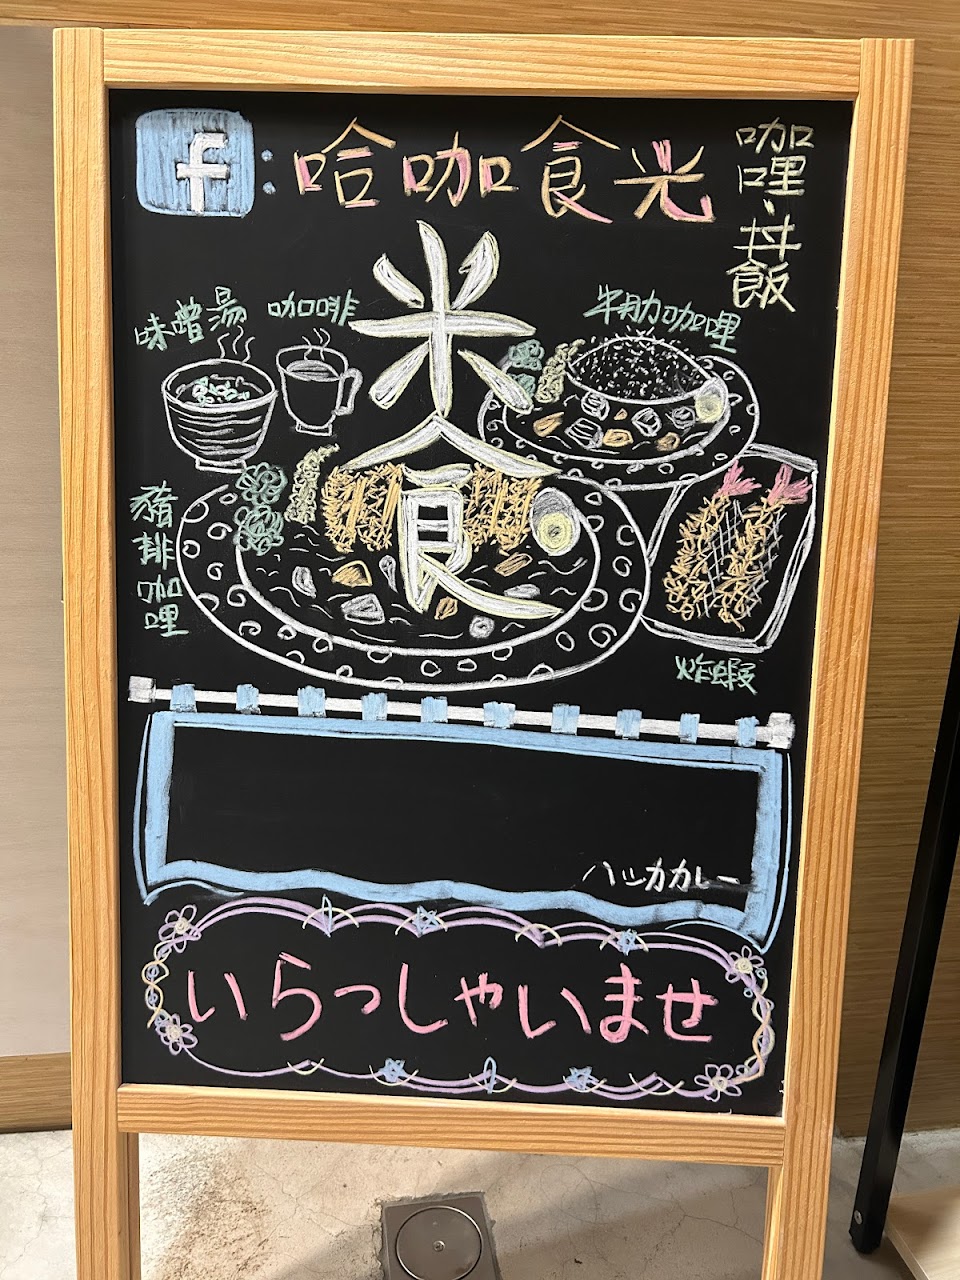 f：哈咖食光
咖哩、丼飯
米食
味噌湯
咖啡
牛肋咖哩
豬排咖哩
炸蝦
ハッカカレー
いらっしゃいませ